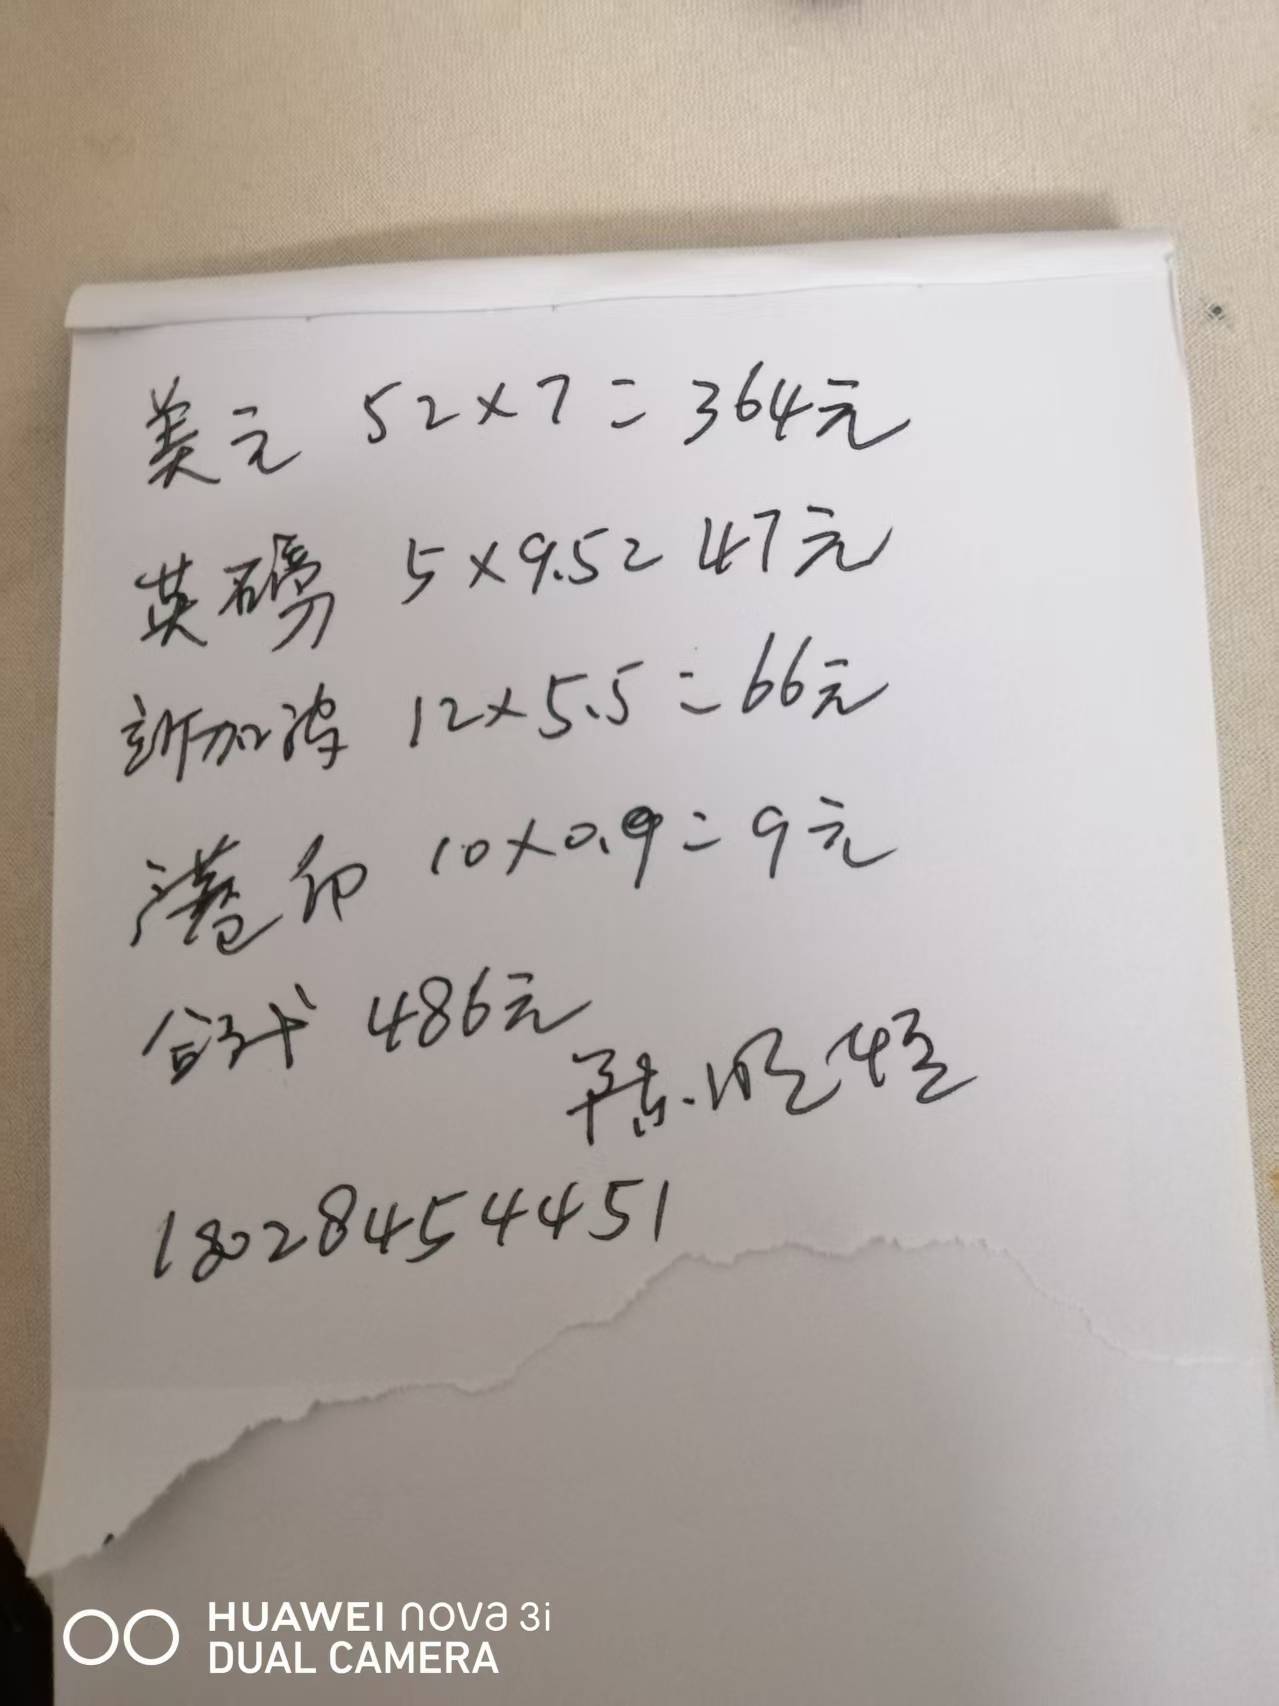 美元 52×7=364元
英磅 5×9.5=47元
新加波 12×5.5=66元
港币 10×0.9=9元
合计 486元
18028454451
HUAWEI nova 3i
DUAL CAMERA